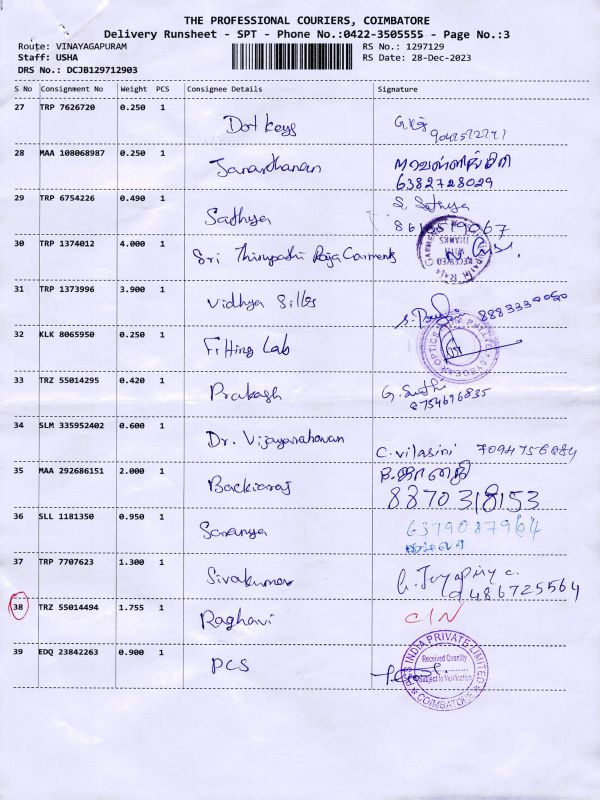 THE PROFESSIONAL COURIERS, COIMBATORE
Delivery Runsheet - SPT - Phone No.:0422-3505555 - Page No.:3
Route: VINAYAGAPURAM RS No.: 1297129
Staff: USHA RS Date: 28-Dec-2023
DRS No.: DCJB129712903
S No Consignment No Weight PCS Consignee Details Signature
27 TRP 7626720 0.250 1
Dot keys
28 MAA 108068987 0.250 1
Janardhanan
6382728029
29 TRP 6754226 0.490 1
Sathya S. Sathya
30 TRP 1374012 4.000 1
Sri Thirupathi Raja Garments
RECEIVED WITH THANKS
31 TRP 1373996 3.900 1
Vidhya Silks
32 KLK 8065950 0.250 1
Fitting Lab
33 TRZ 55014295 0.420 1
Prakash
8754696835
34 SLM 335952402 0.600 1
Dr. Vijayarahavan
C. vilasini 7094756884
35 MAA 292686151 2.000 1
Backiaraj
8870318153
36 SLL 1181350 0.950 1
Saranya 6379087964
37 TRP 7707623 1.300 1
Sivakumar
9486725564
38 TRZ 55014494 1.755 1
Raghavi C/N
39 EDQ 23842263 0.900 1
PCS
PCS INDIA PRIVATE LIMITED
Received Quantity
Subject to Verification
COIMBATORE